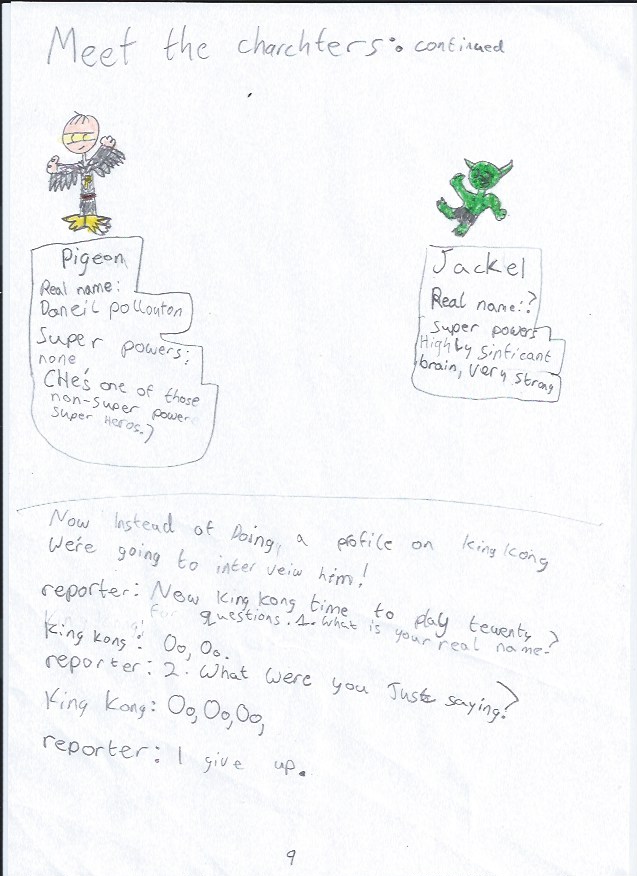 Meet the charchters: continued
Pigeon
Real name:
Daneil pollouton
Super powers:
none
(He's one of those
non-super power
super Heros.)
Jackel
Real name:?
Super powers
Highly sinficant
brain, very strong
Now Instead of Doing, a profile on King Kong
We're going to inter veiw him!
reporter: Now King Kong time to play tewenty
questions. 1. What is your real name?
King Kong: Oo, Oo.
reporter: 2. What were you Just saying?
King Kong: Oo, Oo, Oo,
reporter: I give up.
9